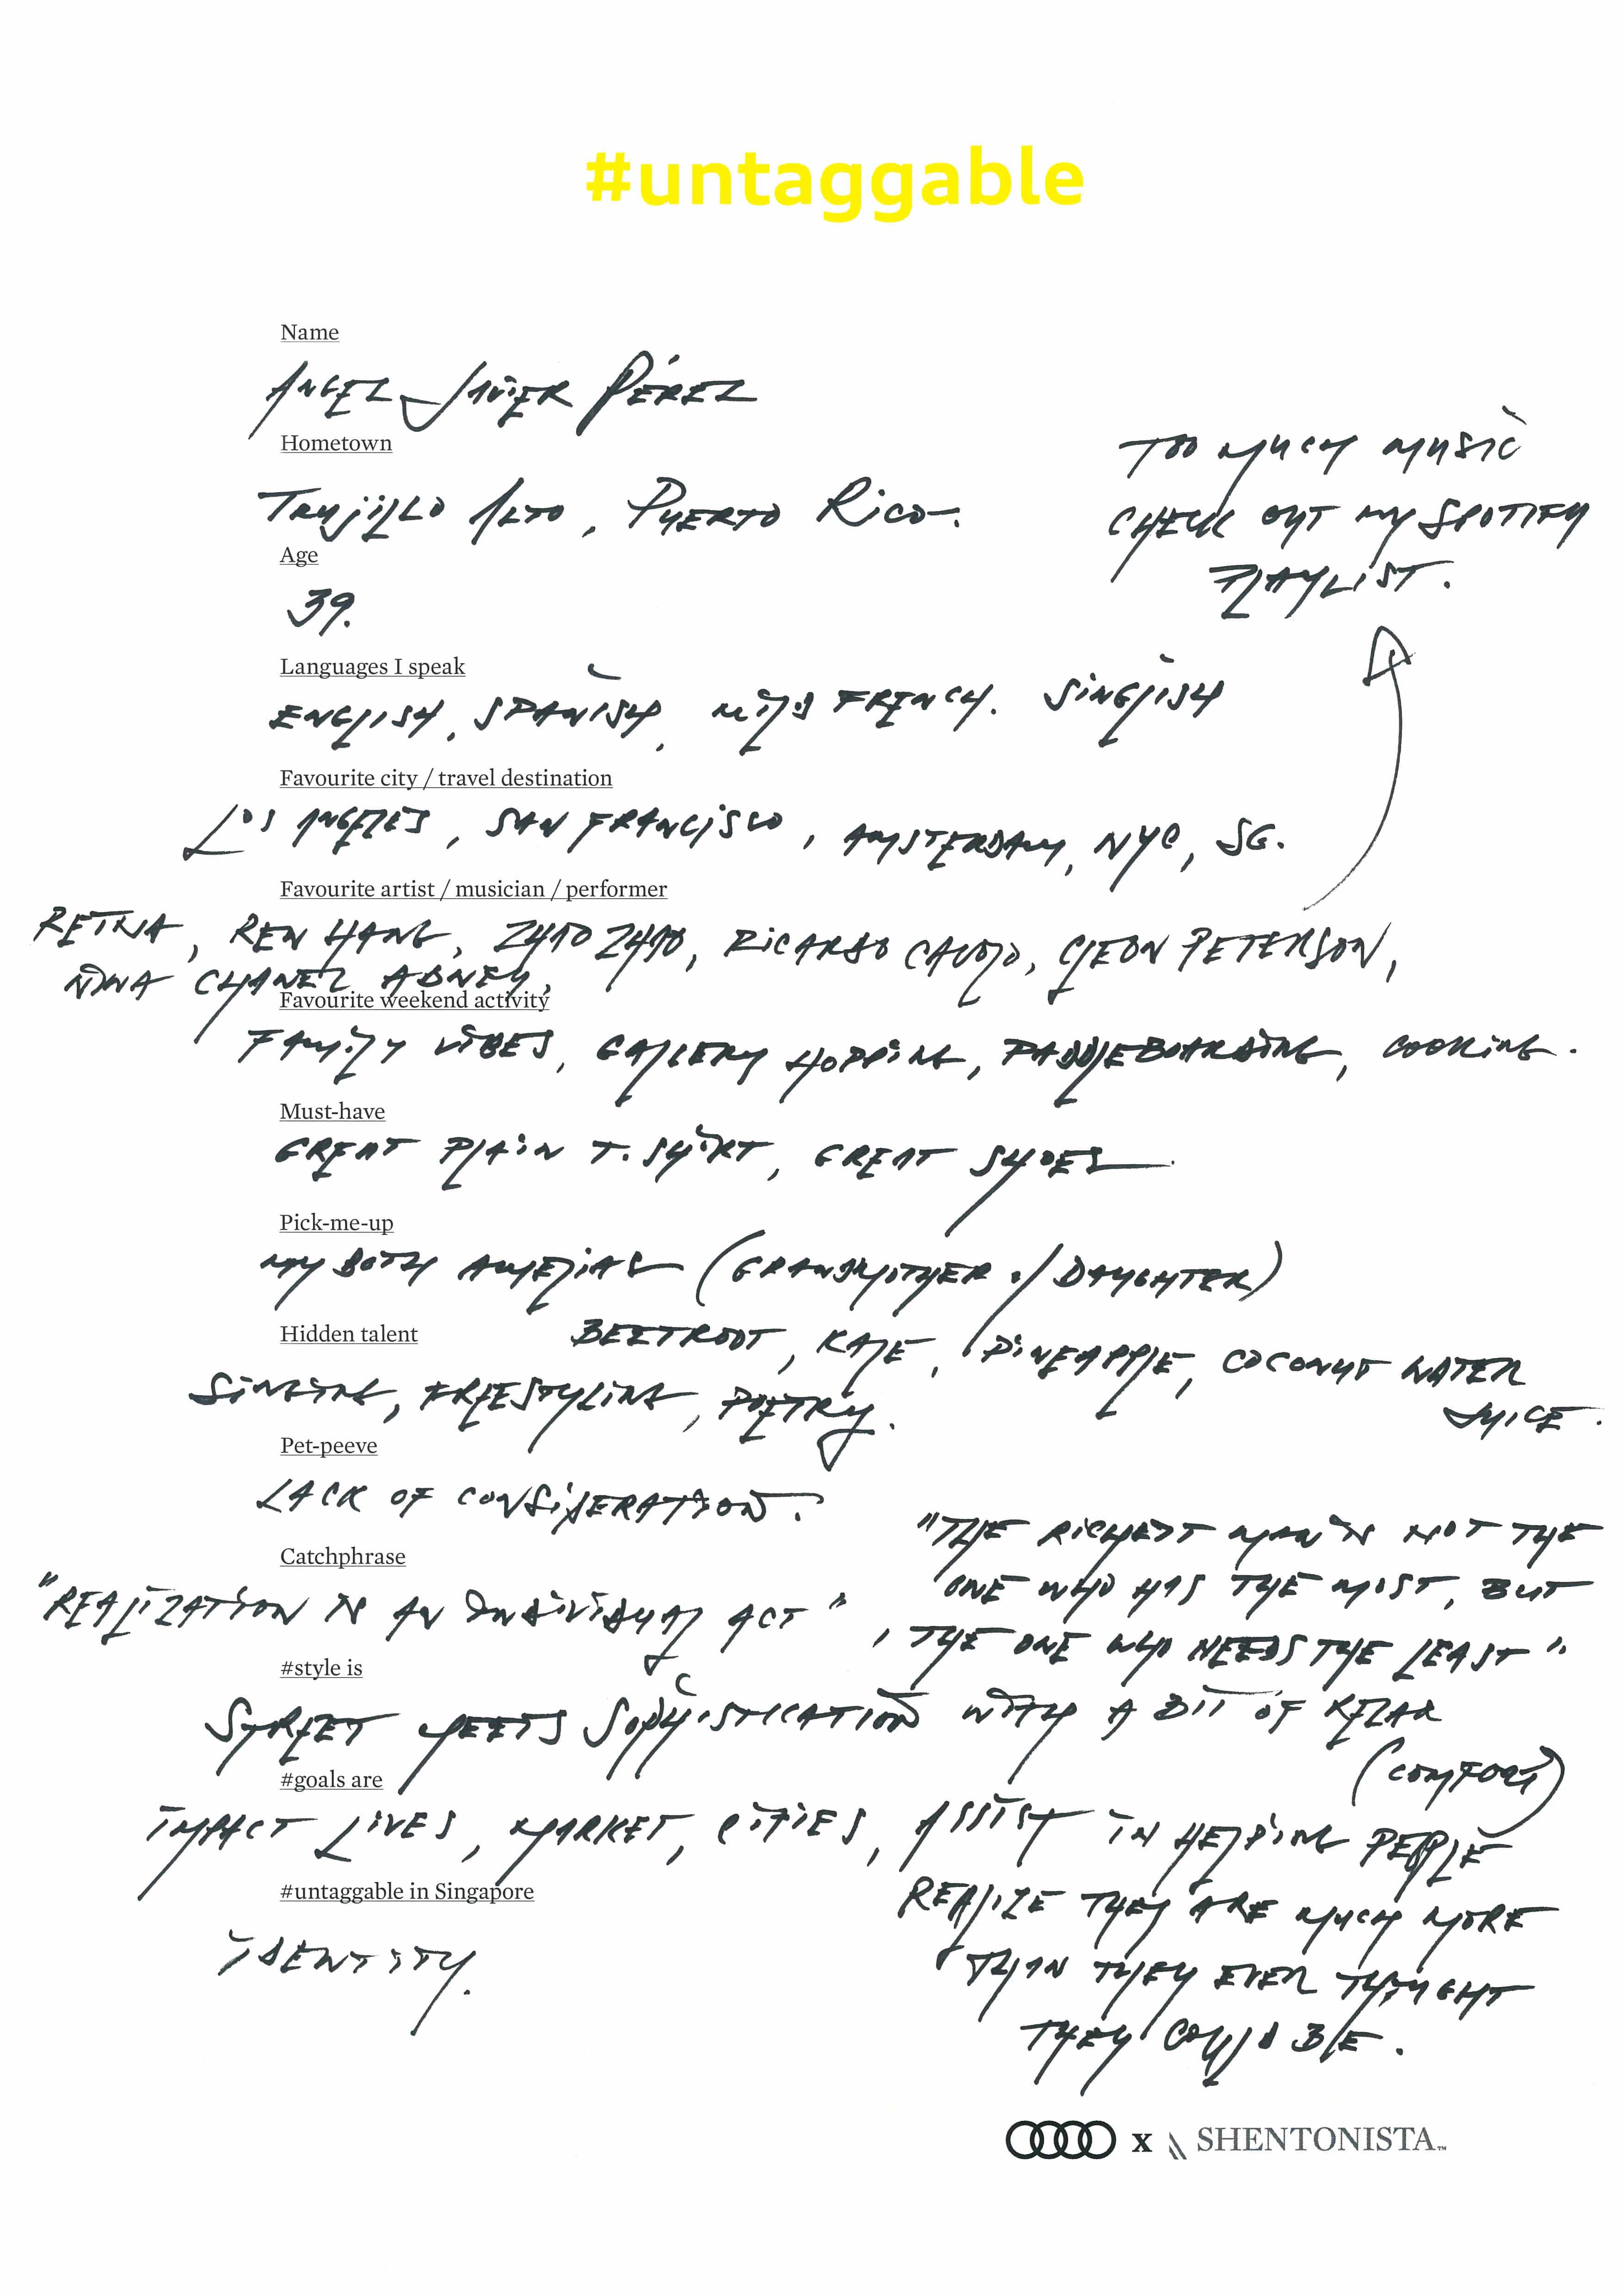 #untaggable
Name
ANGEL JAVIER PÉREZ
Hometown
TRUJILLO ALTO, PUERTO RICO.
TOO MUCH MUSIC
CHECK OUT MY SPOTIFY
PLAYLIST.
Age
39.
Languages I speak
ENGLISH, SPANISH, MILD FRENCH. SINGLISH
Favourite city / travel destination
LOS ANGELES, SAN FRANCISCO, AMSTERDAM, NYC, SG.
Favourite artist / musician / performer
RETNA, REN HANG, ZHAO ZHAO, RICARDO CAVOLO, CLEON PETERSON,
NINA CHANEL ABNEY,
Favourite weekend activity
FAMILY VIBES, GALLERY HOPPING, PADDLEBOARDING, COOKING.
Must-have
GREAT PLAIN T. SHIRT, GREAT SHOES
Pick-me-up
MY BOTH AMELIAS (GRANDMOTHER / DAUGHTER)
BEETROOT, KALE, PINEAPPLE, COCONUT WATER
JUICE.
Hidden talent
SINGING, FREESTYLING, POETRY.
Pet-peeve
LACK OF CONSIDERATION.
Catchphrase
"REALIZATION IS AN INDIVIDUAL ACT",
"THE RICHEST MAN IS NOT THE
ONE WHO HAS THE MOST, BUT
THE ONE WHO NEEDS THE LEAST".
#style is
STREET MEETS SOPHISTICATION WITH A BIT OF RELAX
(COMFORT)
#goals are
IMPACT LIVES, MARKET, CITIES, ASSIST IN HELPING PEOPLE
REALIZE THEY ARE MUCH MORE
THAN THEY EVER THOUGHT
THEY COULD BE.
#untaggable in Singapore
IDENTITY.
x SHENTONISTA™